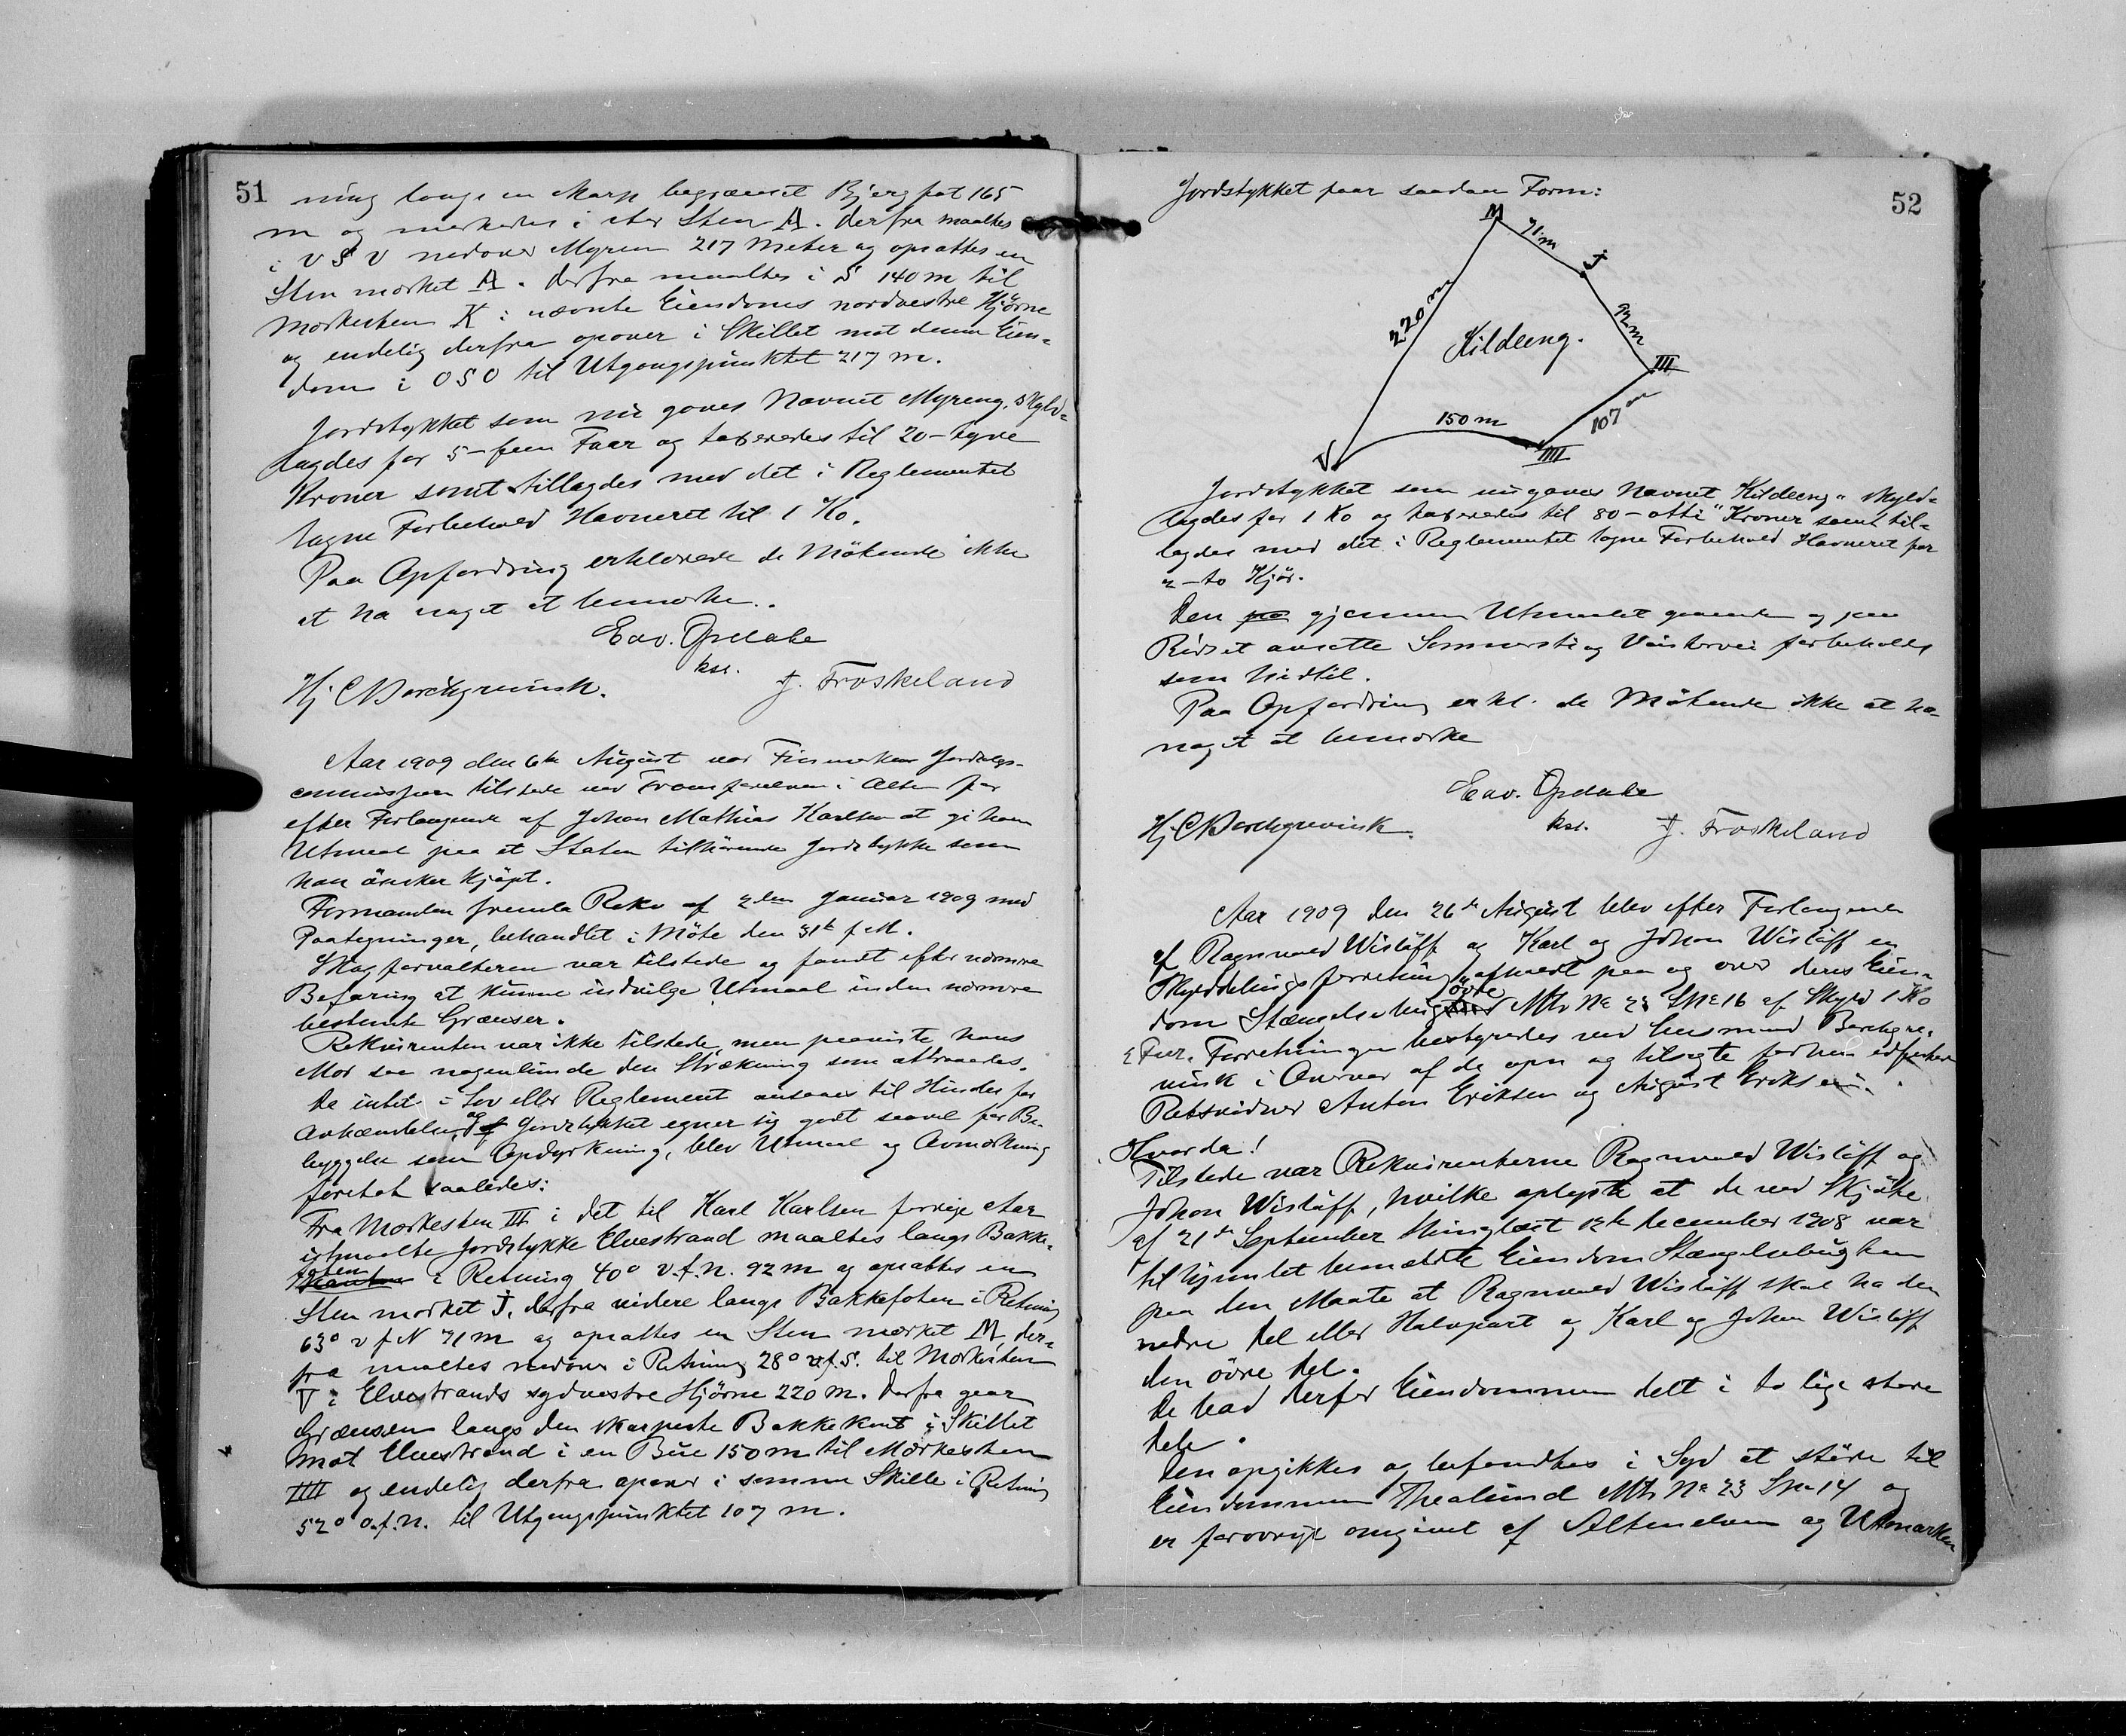 51
ning langs en skarp begrænset Bjergfot 165
m og merkedes i stor Sten A. Derfra maaltes
i V S V nedover Myren 217 Meter og opsattes en
Sten mærket A. Derfra maaltes i S 140 m til
Merkesten K i nævnte Eiendoms nordvestre Hjørne
og endelig derfra opover i Skillet mot denne Eien=
dom i O S O til Utgangspunktet 217 m.
Jordstykket som nu gaves Navnet Myreng, skyld=
lagdes for 5 - fem Faar og taxeredes til 20 - tyve
Kroner samt tillagdes med det i Reglementet
tagne Forbehold Havneret til 1 Ko.
Paa Opfordring erklærede de Mötende ikke
at ha noget at bemærke.
Edv. Opdahl
kst.
Hj. C Borchgrevink.
J. Froskeland
Aar 1909 den 6te August var Finmarkens Jordsalgs-
commission tilstede ved Tranfarelven i Alten for
efter Forlangende af Johan Mathias Karlsen at gi ham
Utmaal paa et Staten tilhörende Jordstykke som
han önsker kjöpt.
Formanden fremla Rekv af 2den Januar 1909 med
Paategninger, behandlet i Möte den 31te f. M.
Skogforvalteren var tilstede og fandt efter nærmere
Befaring at kunne indvilge Utmaal inden nærmere
bestemte Grænser.
Rekvirenten var ikke tilstede men paaviste hans
Mor saa nogenlunde den Strækning som attraaedes.
Da intet i Lov eller Reglement ansaaes til Hinder for
Avhændelse, og Jordstykket egner sig godt saavel for Be=
byggelse som Opdyrkning, blev Utmaal og Avmerkning
foretat saaledes:
Fra Merkesten III i det til Karl Karlsen forrige Aar
utmaalte Jordstykke Elvestrand maaltes langs Bakke=
foten i Retning 40° v.f.n. 92 m og opsattes en
Sten mærket J, derfra videre langs Bakkefoten i Retning
63° v f N 71 m og opsattes en Sten mærket M, der=
fra maaltes nedover i Retning 28° v.f.S. til Merkesten
V i Elvestrands sydvestre Hjörne 220 m. Derfra gaar
Grænsen langs den skarpeste Bakkekant i Skillet
mot Elvestrand i en Bue 150 m til Mærkesten
IIII og endelig derfra opover i samme Skille i Retning
52° o.f.n. til Utgangspunktet 107 m.
52
Jordstykket faar saadan Form:
M
71 m
J
220 m
92 m
Kildeeng.
III
150 m
107 m
V
IIII
Jordstykket som nu gaves Navnet "Kildeeng" skyld=
lagdes for 1 Ko og taxeredes til 80 - otti Kroner samt til=
lagdes med det i Reglementet tagne Forbehold Havneret for
2 - to Kjör.
Den gjennem Utmaalet gaaende og paa
Ridset avsatte Sommersti og Vintervei forbeholdes
som hidtil.
Paa Opfordring erkl. de Mötende ikke at ha
noget at bemærke
Edv. Opdahl
kst.
Hj. C Borchgrevink.
J. Froskeland
Aar 1909 den 26de August blev efter Forlangende
af Ragnvald Wislöff og Karl og Johan Wislöff en
Skylddelingsforretning avholdt paa og over deres Eien=
dom Stængelsebugten övre Mtr No 23 LNo 16 af Skyld 1 Ko
2 Faar. Forretningen bestyredes ved Lensmand Borchgre=
vink i Overvær af de opn og tilsagte forhen edfæstede
Retsvidner Anton Eriksen og August Eriksen.
Hvorda!
Tilstede var Rekvirenterne Ragnvald Wislöff og
Johan Wislöff, hvilke oplyste at de ved Skjöte
af 21de September thinglæst 12te December 1908 var
tilhjemlet bemeldte Eiendom Stængelsebugten
paa den Maate at Ragnvald Wislöff skal ha den
nedre Del eller Halvpart og Karl og Johan Wislöff
den övre Del.
De bad derfor Eiendommen delt i to lige store
Dele.
Den opgikkes og befandtes i Syd at støde til
Eiendommen Thealund Mtr No 23 LNo 14 og
er forövrigt omgivet af Altenelven og Utmarken